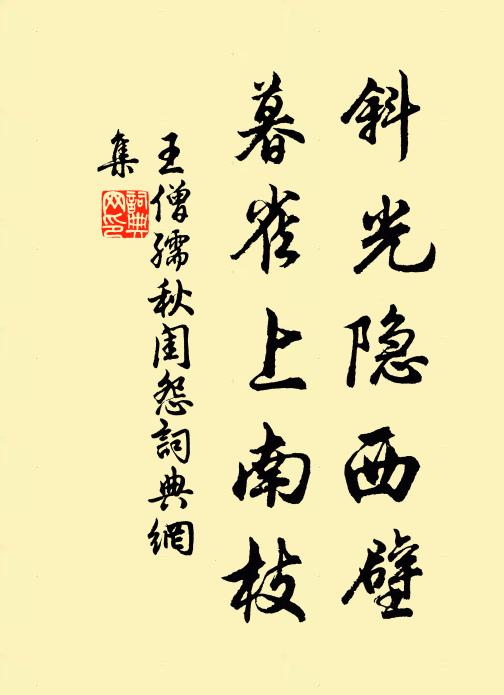 斜光隐西壁
暮雀上南枝
王僧孺秋闺怨詞典網
集
詞典網印